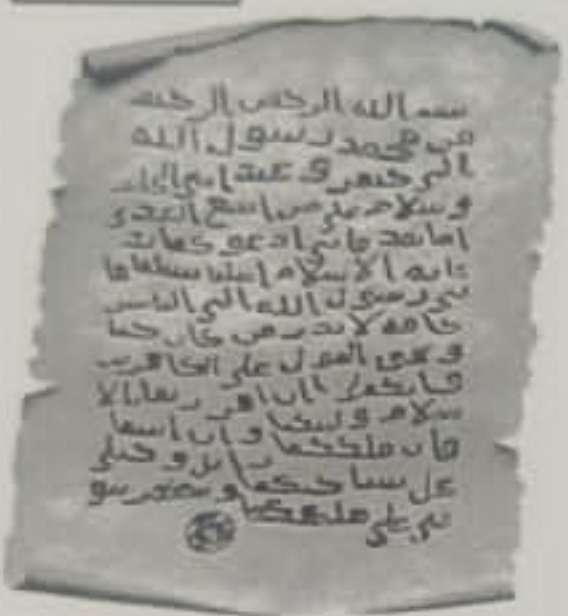 بسم الله الرحمن الرحيم
من محمد رسول الله
الى جيفر وعبد ابني
وسلام على من اتبع الهدى
اما بعد فاني ادعوكما بد
عاية الاسلام اسلما تسلما فا
ني رسول الله الى الناس
كافة لانذر من كان حيا
ويحق القول على الكافرين
فانكما ان اقررتما بالا
سلام وليتكما وان ابيتما
فان ملككما زايل وخيلي
تحل بساحتكما وتظهر نبو
تي على ملككما